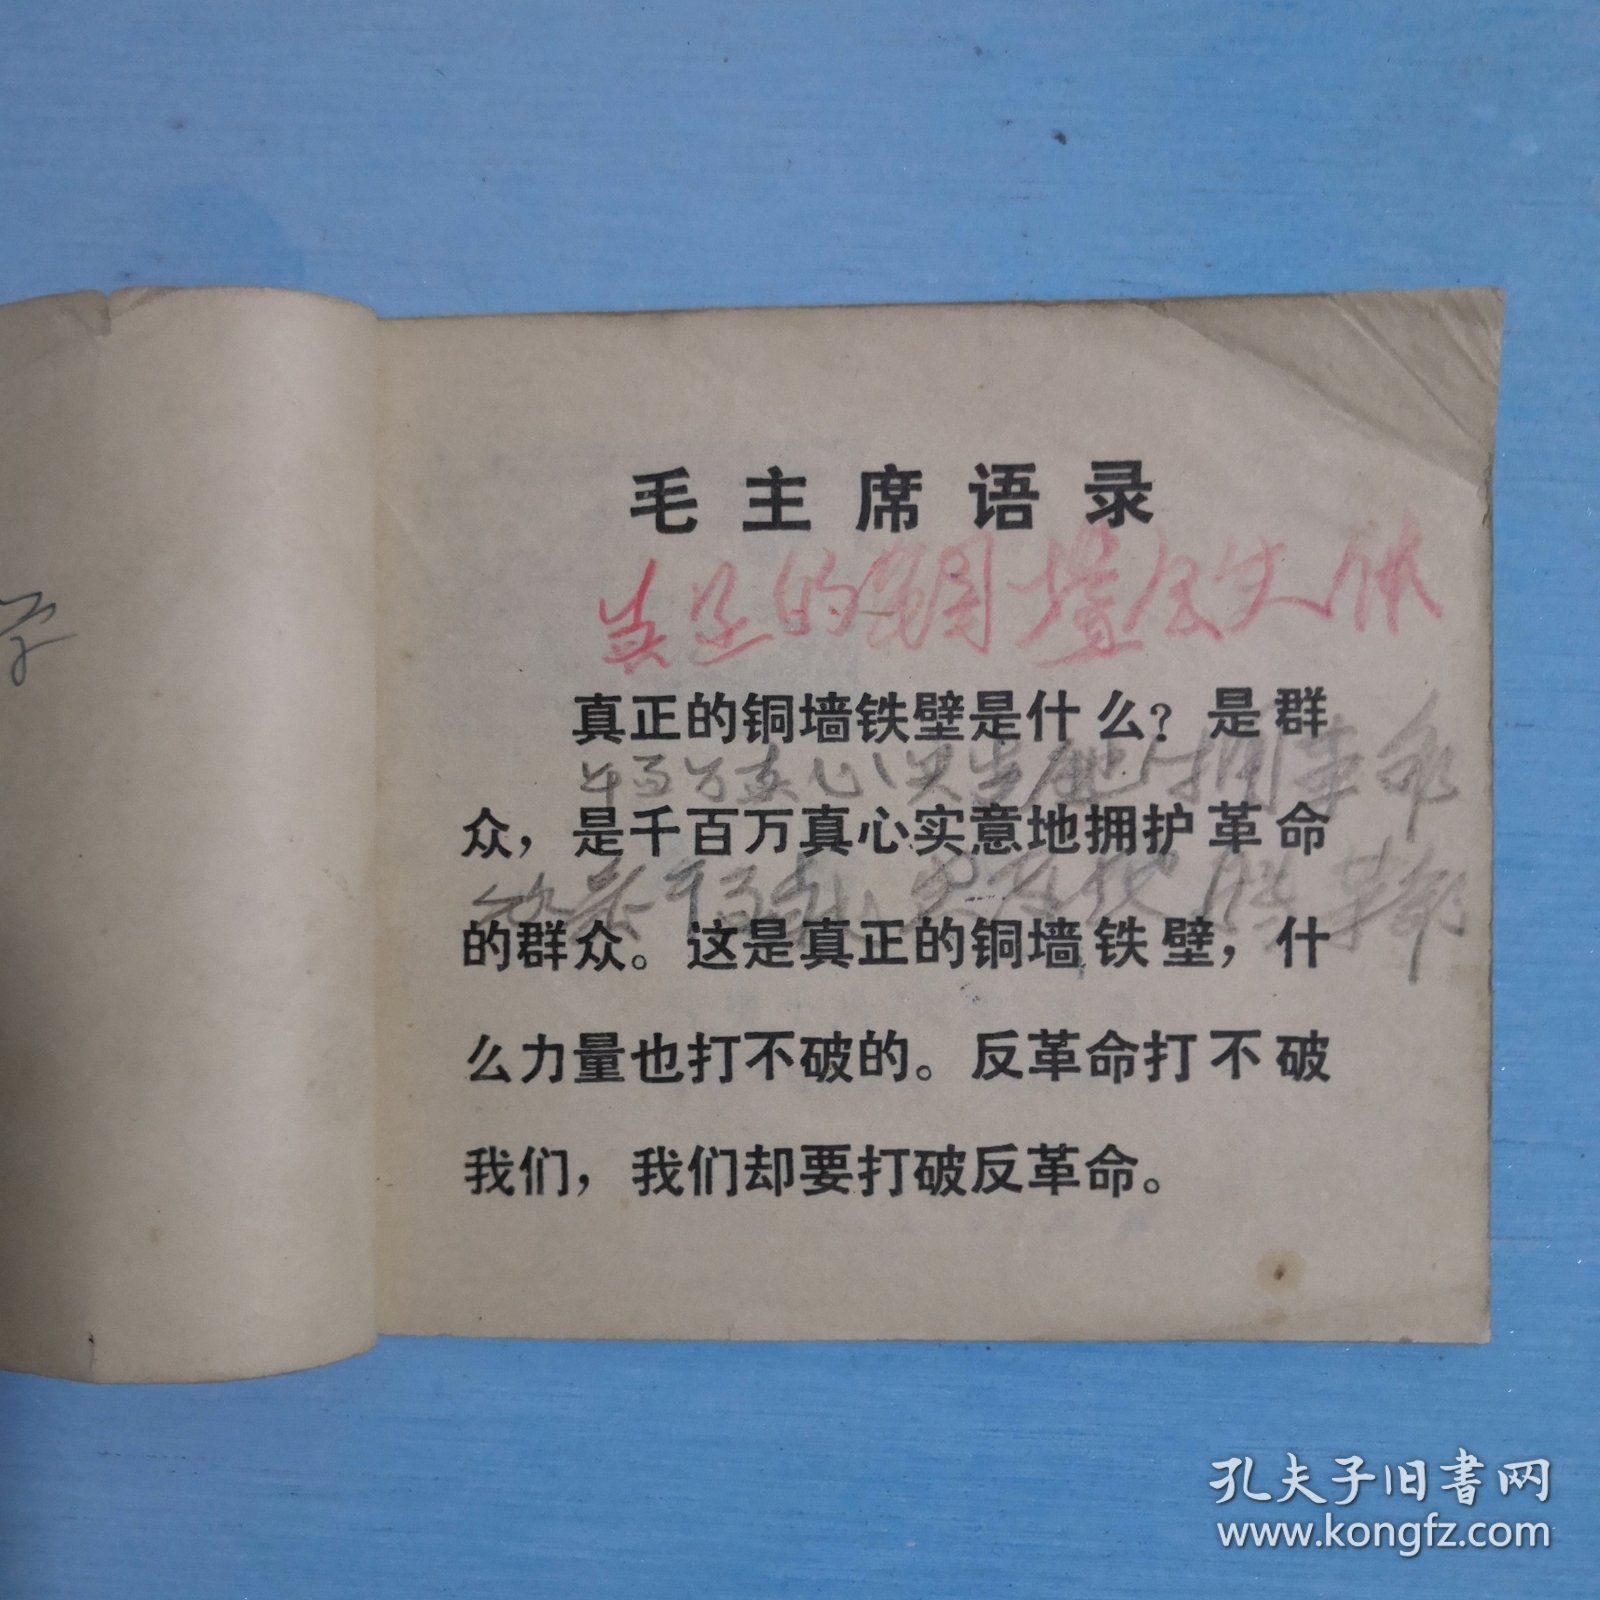 毛主席语录
真正的铜墙
真正的铜墙铁壁是什么？是群
众，是千百万真心实意地拥护革命
的群众。这是真正的铜墙铁壁，什
么力量也打不破的。反革命打不破
我们，我们却要打破反革命。
学
孔夫子旧书网
www.kongfz.com